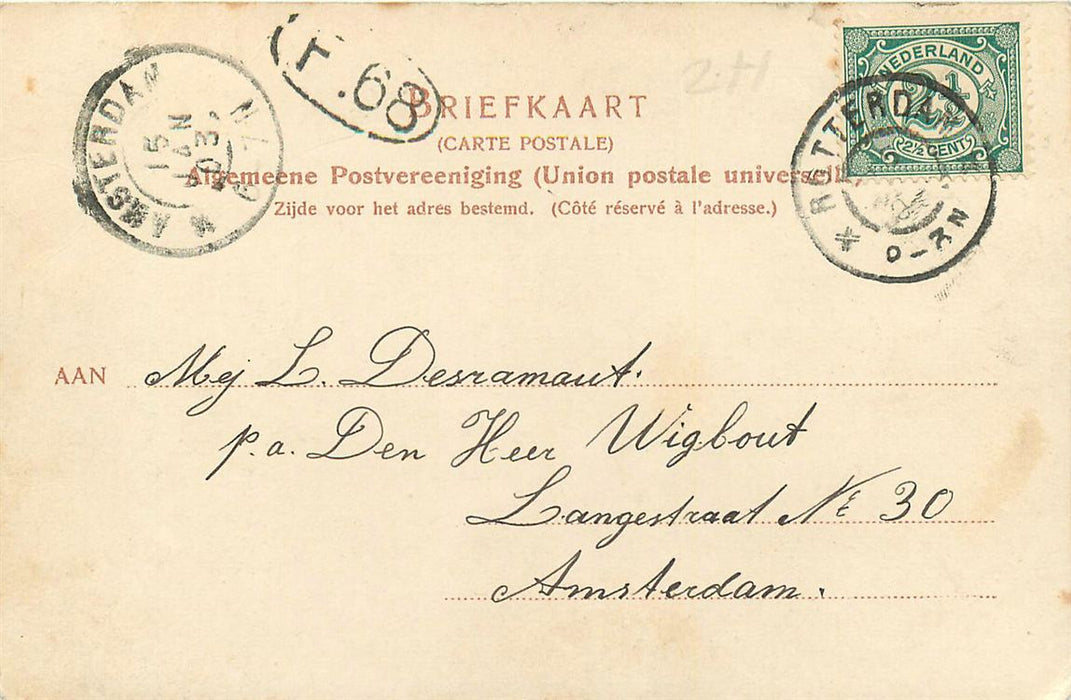 NEDERLAND
2½
2½ CENT
ROTTERDAM
9-12N
AMSTERDAM
15
JAN
03
F.68
BRIEFKAART
(CARTE POSTALE)
Algemeene Postvereeniging (Union postale universelle)
Zijde voor het adres bestemd. (Côté réservé à l'adresse.)
AAN Mej L. Desramaut.
p.a. Den Heer Wigbout
Langestraat No 30
Amsterdam.